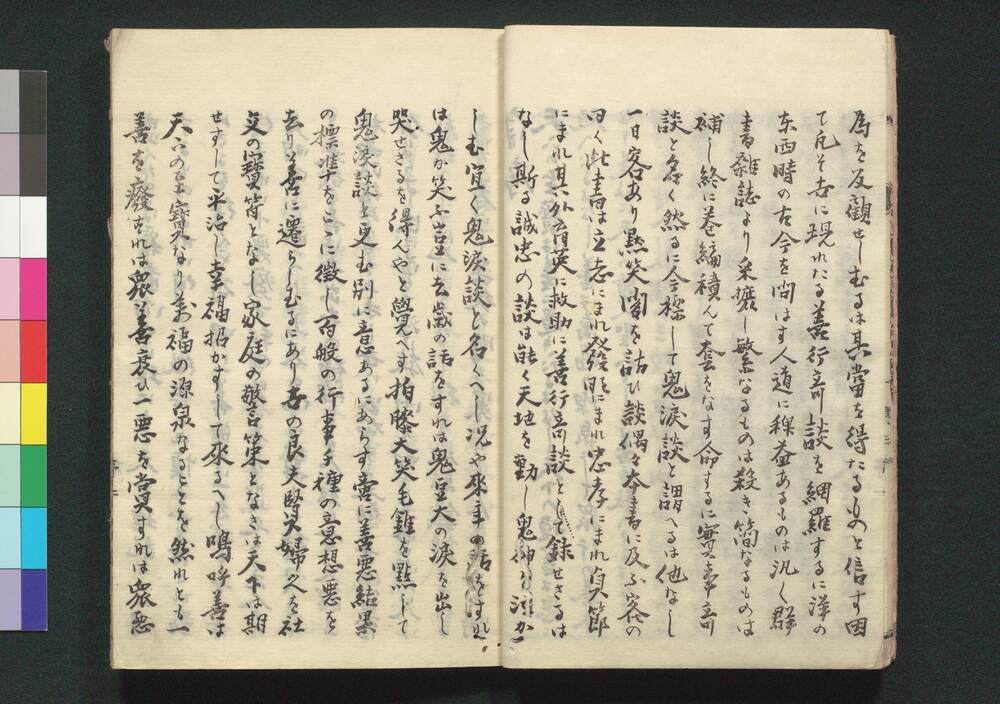 為を反觀せしむるは其當を得たるものと信す因
て凡そ世に現れたる善行奇談を網羅するに洋の
东西時の古今を問はす人道に裨益あるものは汎く群
書雜誌より采摭し繁なるものは殺き簡なるものは
補ふし終に巻編積んて套をなす命するに實事奇
談と名く然るに今標して鬼涙談と謂へるは他なし
一日客あり默笑閣を訪ひ談偶々本書に及ふ客の
曰く此書は立志にまれ發明にまれ忠孝にまれ貞節
にまれ其外育英に救助に善行奇談として録せさるは
なし斯る誠忠の談は能く天地を動し鬼神を泣か
しむ宜く鬼涙談と名くへし况や來年の話をすれ
は鬼か笑ふ豈に去歳の話をすれは鬼豆大の涙を出し
哭せさるを得んやと覺へす拍膝大笑毛錐を點して
鬼涙談と更む別に意あるにあらす啻に善悪結果
の標準をここに徴し百般の行事千種の意想悪を
去り善に遷らしむるにあり世の良夫賢婦之を社
交の寶符となし家庭の警策となさは天下は期
せすして平治し幸福招かすして來るへし嗚呼善は
天下の至寶なり萬福の源泉なることを然れとも一
善を廢すれは衆善衰ひ一悪を賞すれは衆悪